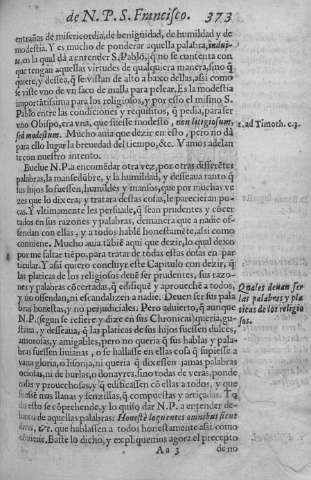 de N. P. S. Francisco. 373
entrañas de misericordia, de benignidad, de humildad y de
modestia. Y es mucho de ponderar aquella palabra, indui-
, en la qual dà a entender S. Pablo, q̃ no se contenta con
que tengan aquellas virtudes de qualquiera manera, sino q̃
quiere, y dessea, q̃ se vistan de alto a baxo dellas, assi como
se viste vno de vn saco de malla para pelear. Es la modestia
importãtissima para los religiosos, y por esso el mismo S.
Pablo entre las condiciones y requisitos, q̃ pedia, para ser
vno Obispo, era vna, que fuesse modesto, non litigiosum,
sed modestum. Mucho auia que dezir en esto, pero no dà
para ello lugar la breuedad del tiempo, &c. Vamos adelan-
te con nuestro intento.
1. ad Timoth. c. 3.
Buelue N. P. a encomẽdar otra vez, por otras diferẽtes
palabras, la mansedũbre, y la humildad, y desseaua tanto q̃
sus hijos lo fuessen, humildes y mansos, que por muchas ve
zes que lo dixera, y tratara destas cosas, le parecieran po-
cas. Y vltimamente les persuade, q̃ sean prudentes y cõcer
tados en sus razones y palabras, demanera que a nadie ofen-
dan con ellas, y a todos hablẽ honestamẽte, assi como
conuiene. Mucho auia tãbiẽ aqui que dezir, lo qual dexo
por me faltar tiẽpo, para tratar de todas estas cosas en par
ticular. Y assi quiero concluyr este Capitulo con dezir, q̃
las platicas de los religiosos deuẽ ser prudentes, sus razo-
nes y palabras cõcertadas, q̃ edifiquẽ y aprouechẽ a todos,
y no ofendan, ni escandalizen a nadie. Deuen ser sus pala
bras honestas, y no perjudiciales. Pero aduierto, q̃ aunque
N. P. (segun se refiere y dize en sus Chronicas) queria, gu-
staua, y desseaua, q̃ las platicas de sus hijos fuessen dulces,
amorosas, y amigables, pero no queria q̃ sus hablas y pala-
bras fuessen liuianas, o se hallasse en ellas cosa q̃ supiesse a
vana gloria, o lisonja, ni queria q̃ dixessen jamas palabras
ociosas, ni de burlas, o donayres, sino todas de veras, ponde
rosas y prouechosas, y q̃ edificassen cõ ellas a todos, y que
fuessẽ mas llanas y senzillas, q̃ compuestas y artizadas.
Quales deuan ser
las palabras y pla
ticas de los religio
sos.
do esto se cõprehende, y lo quiso dar N. P. a entender de-
baxo de aquellas palabras: Honestè loquentes omnibus sicut
decet, &c. que hablassen a todos honestamente assi como
conuiene. Baste lo dicho, y expliquemos agora el precepto
Aa 3 de no